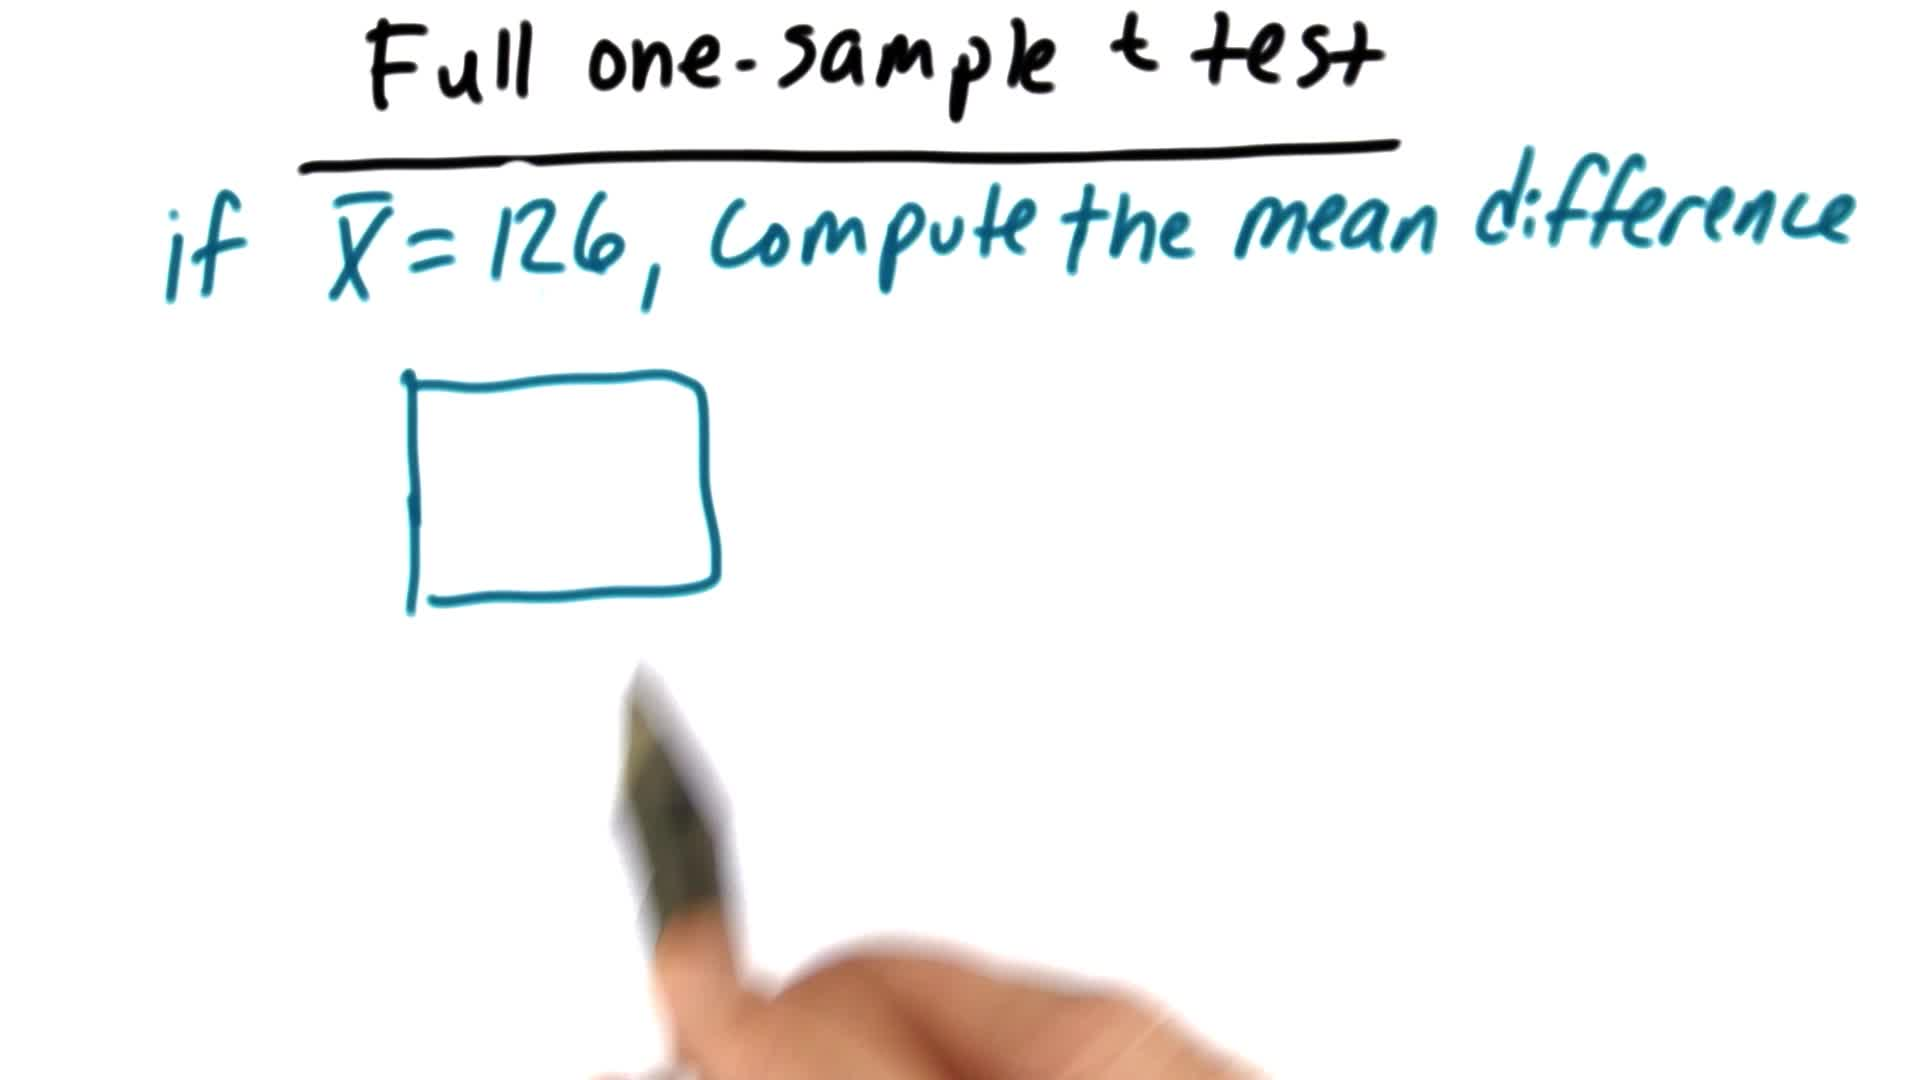 Full one-sample t test
if x̅ = 126, compute the mean difference